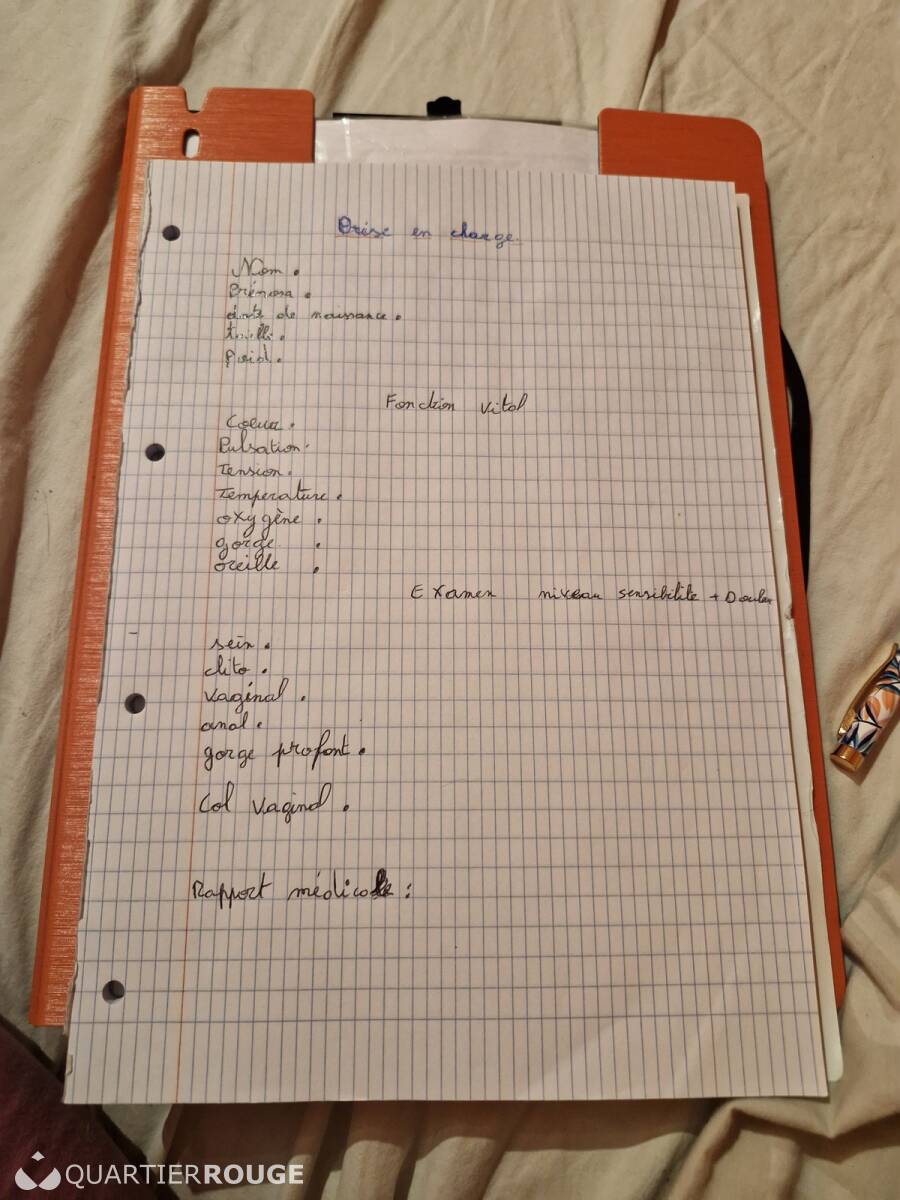 Prise en charge
Nom.
Prénom.
date de naissance.
taille.
poid.
Fonction vital
Coeur.
Pulsation.
Tension.
Temperature.
oxygène.
gorge.
oreille.
Examen niveau sensibilite + Douleur
sein.
clito.
vaginal.
anal.
gorge profont.
Col vaginal.
Rapport médicale:
QUARTIERROUGE